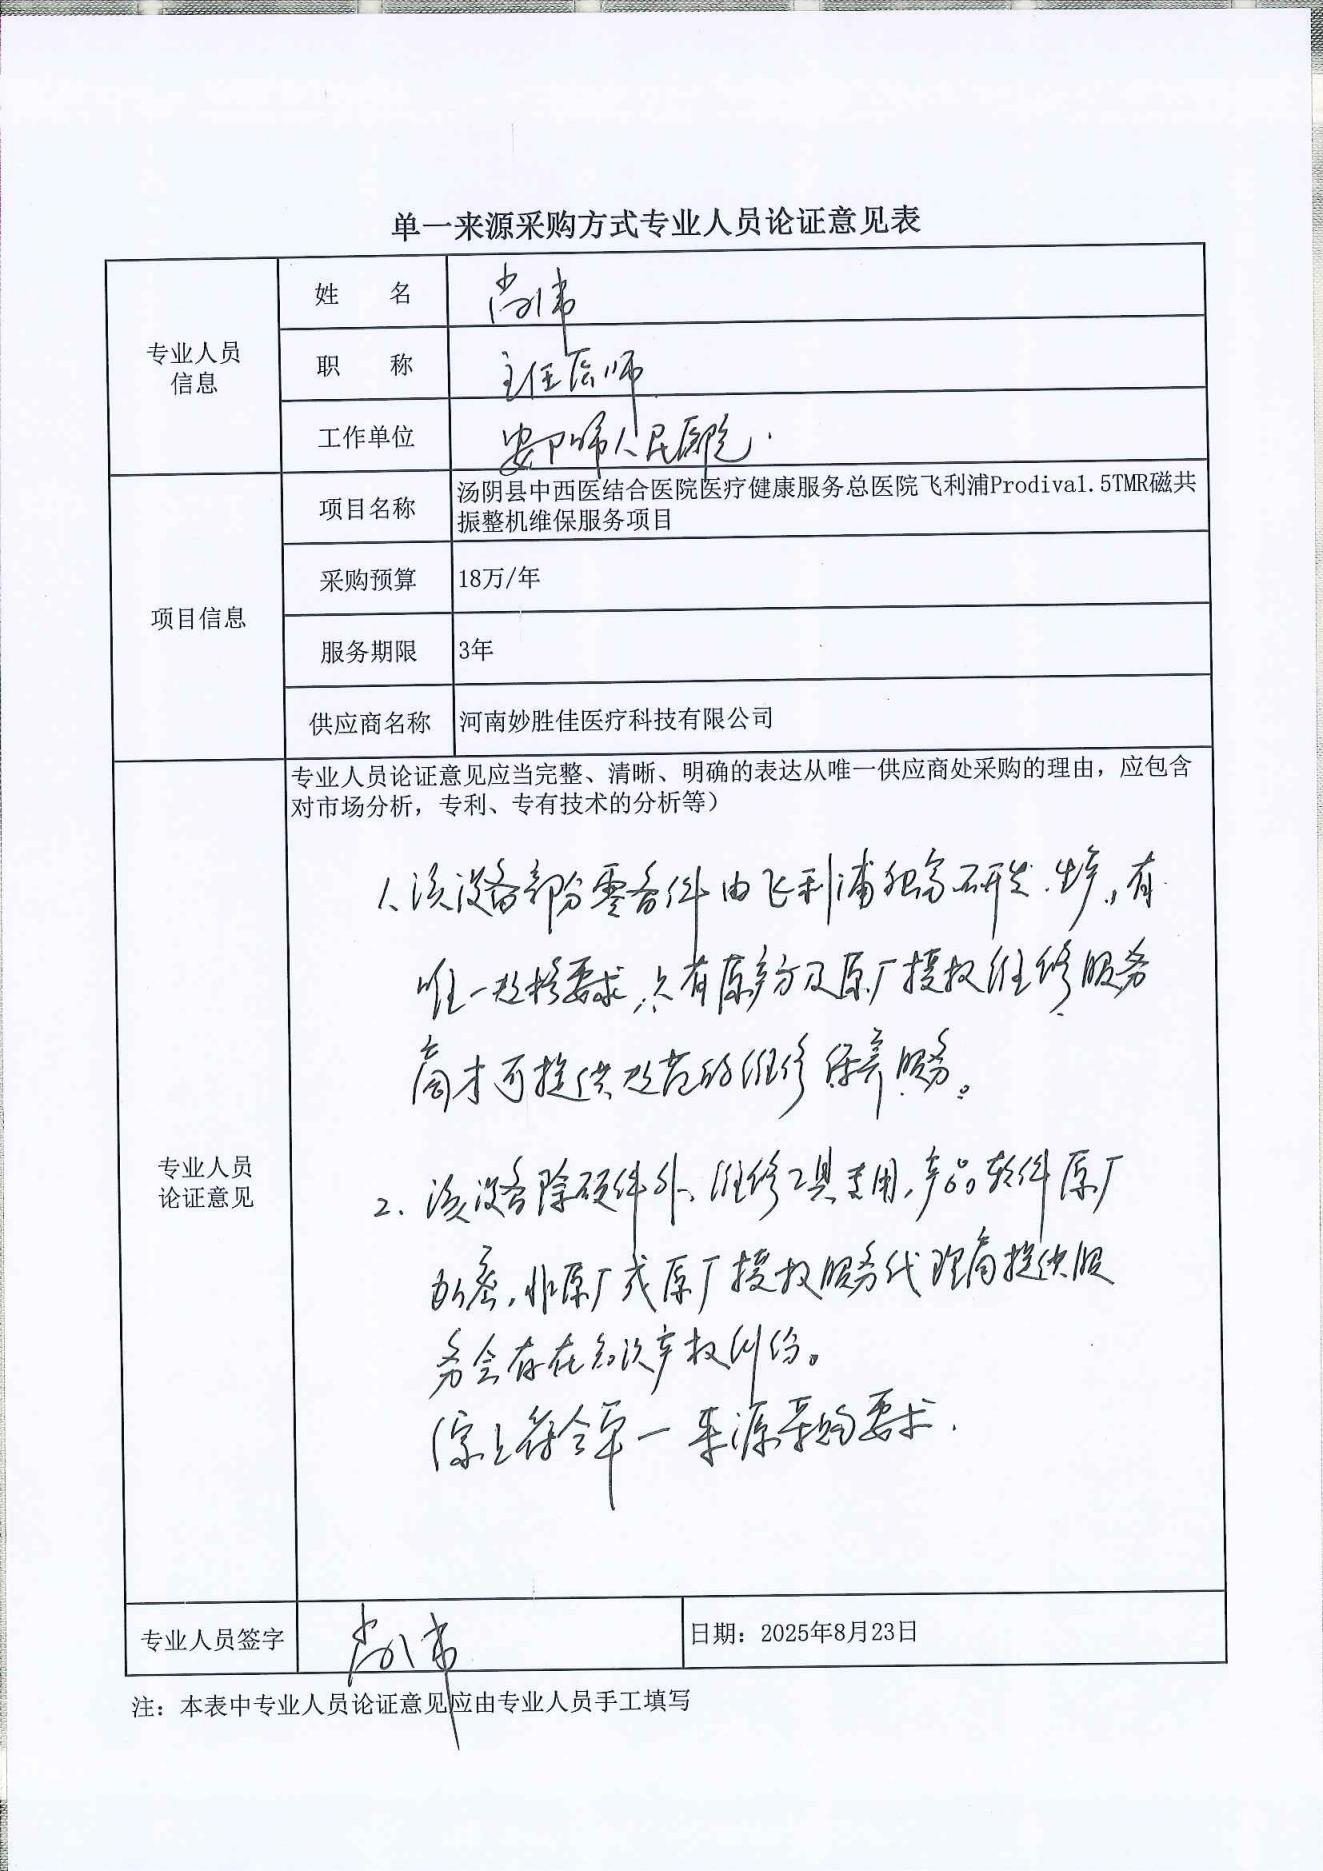 单一来源采购方式专业人员论证意见表
专业人员
信息
姓 名
尚伟
职 称
主任医师
工作单位
安阳市人民医院.
项目信息
项目名称
汤阴县中西医结合医院医疗健康服务总医院飞利浦Prodiva1.5TMR磁共
振整机维保服务项目
采购预算
18万/年
服务期限
3年
供应商名称
河南妙胜佳医疗科技有限公司
专业人员
论证意见
专业人员论证意见应当完整、清晰、明确的表达从唯一供应商处采购的理由，应包含
对市场分析，专利、专有技术的分析等）
1、该设备部分零备件由飞利浦独家研发、生产，有
唯一规格要求，只有原产方及原厂授权维修服务
商才可提供规范的维修保养服务。
2、该设备除硬件外、维修工具专用，产品软件原厂
加密，非原厂或原厂授权服务代理商提供服
务会存在知识产权纠纷。
综上符合单一来源采购要求.
专业人员签字
尚伟
日期：2025年8月23日
注：本表中专业人员论证意见应由专业人员手工填写